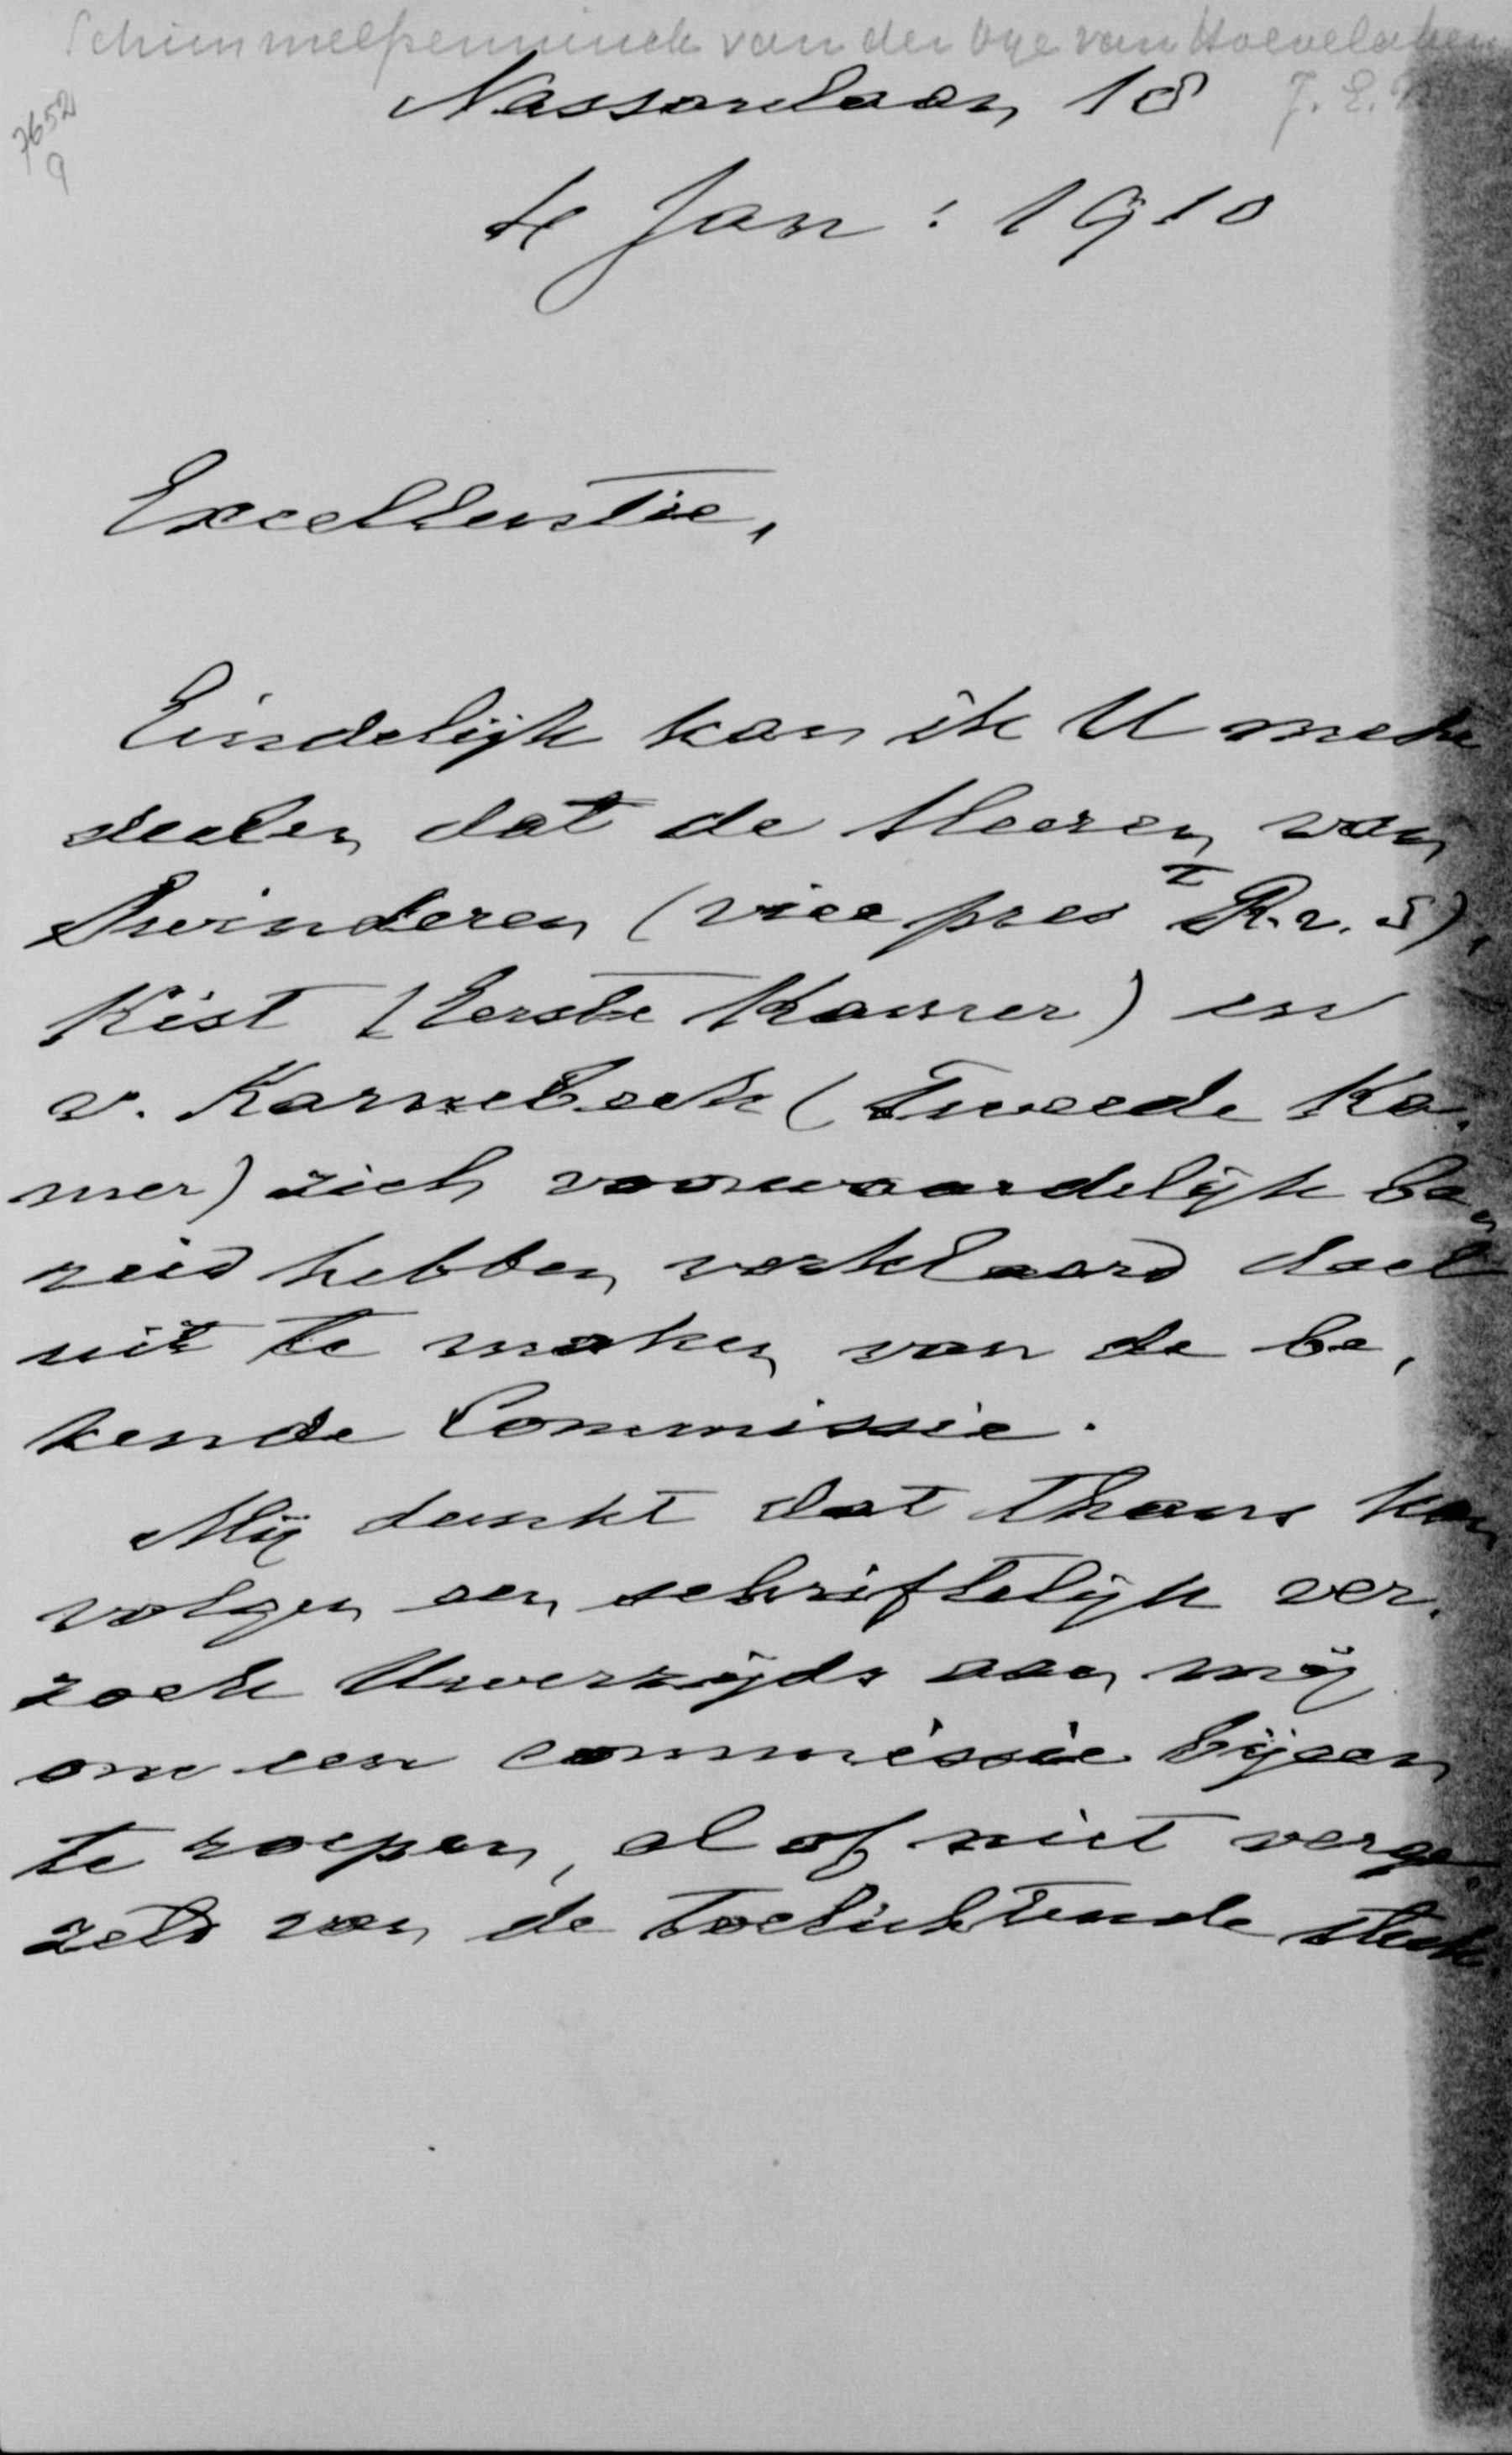 Schimmelpenninck van der Oye van Hoevelaken
J. E. N.
7652
9
Nassaulaan 18
4 Jan: 1910
Excellentie,
Eindelijk kan ik U mede
deelen dat de Heeren van
Swinderen (vice pres R.v.S),
Kist (Eerste Kamer) en
v. Karnebeek (Tweede Ka-
mer) zich voorwaardelijk be-
reid hebben verklaard deel
uit te maken van de be-
kende Commissie.
Mij dunkt dat thans kan
volgen een schriftelijk ver-
zoek Uwerzijds aan mij
om een commissie bijeen
te roepen, al of niet verge-
zeld van de toelichtende stuk-